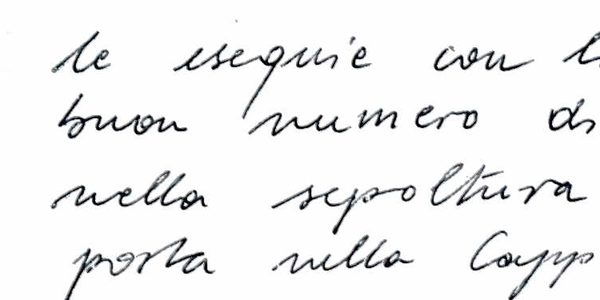 le esequie con
buon numero di
nella sepoltura
posta nella Capp